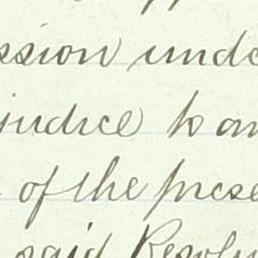 ssion unde
judice to an
of the prese
said Resolu